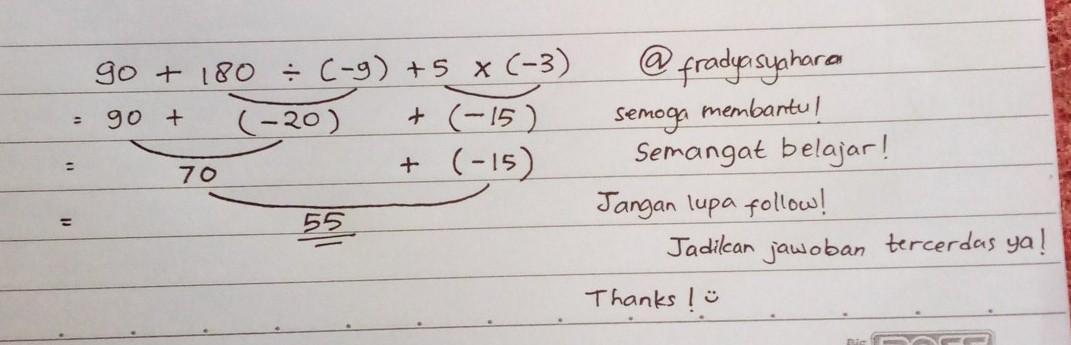 90 + 180 ÷ (-9) + 5 x (-3)
= 90 + (-20) + (-15)
= 70 + (-15)
= 55
@fradyasyahara
semoga membantu!
Semangat belajar!
Jangan lupa follow!
Jadikan jawaban tercerdas ya!
Thanks! ☺